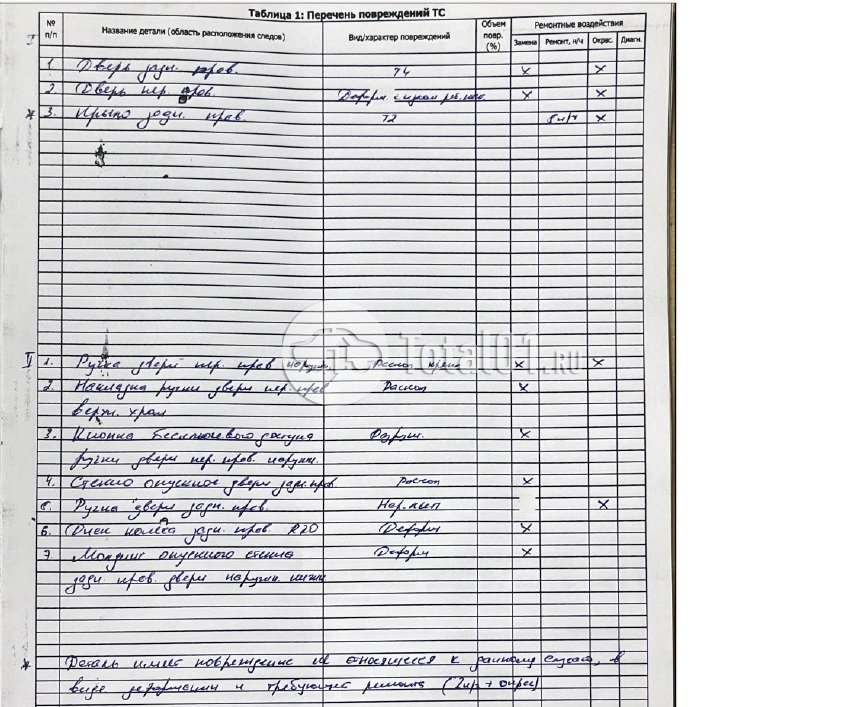 Таблица 1: Перечень повреждений ТС
№ п/п Название детали (область расположения следов) Вид/характер повреждений Объем повр. (%) Ремонтные воздействия
Замена Ремонт, н/ч Окрас. Диагн.
I
1. Дверь задн. прав. T4 x x
2. Дверь пер. прав. Деформ. x x
* 3. Крыло задн. прав. T2 8н/ч x
II 1. Ручка двери пер. прав наружн. Раскол x x
2. Накладка ручки двери пер. прав Раскол x
верхн. хром
3. Кнопка бесключевого доступа Разруш. x
ручки двери пер. прав. наружн.
4. Стекло опускное двери задн. прав Раскол x
5. Ручка двери задн. прав. Нар. лкп x
6. Диск колеса задн. прав. R20 Деформ x
7. Молдинг опускного стекла Деформ x
задн. прав. двери наружн. нижн
Total01.RU
* Деталь имеет повреждение не относящееся к данному случаю, в
виде деформации и требующее ремонта (2н/ч + окрас)